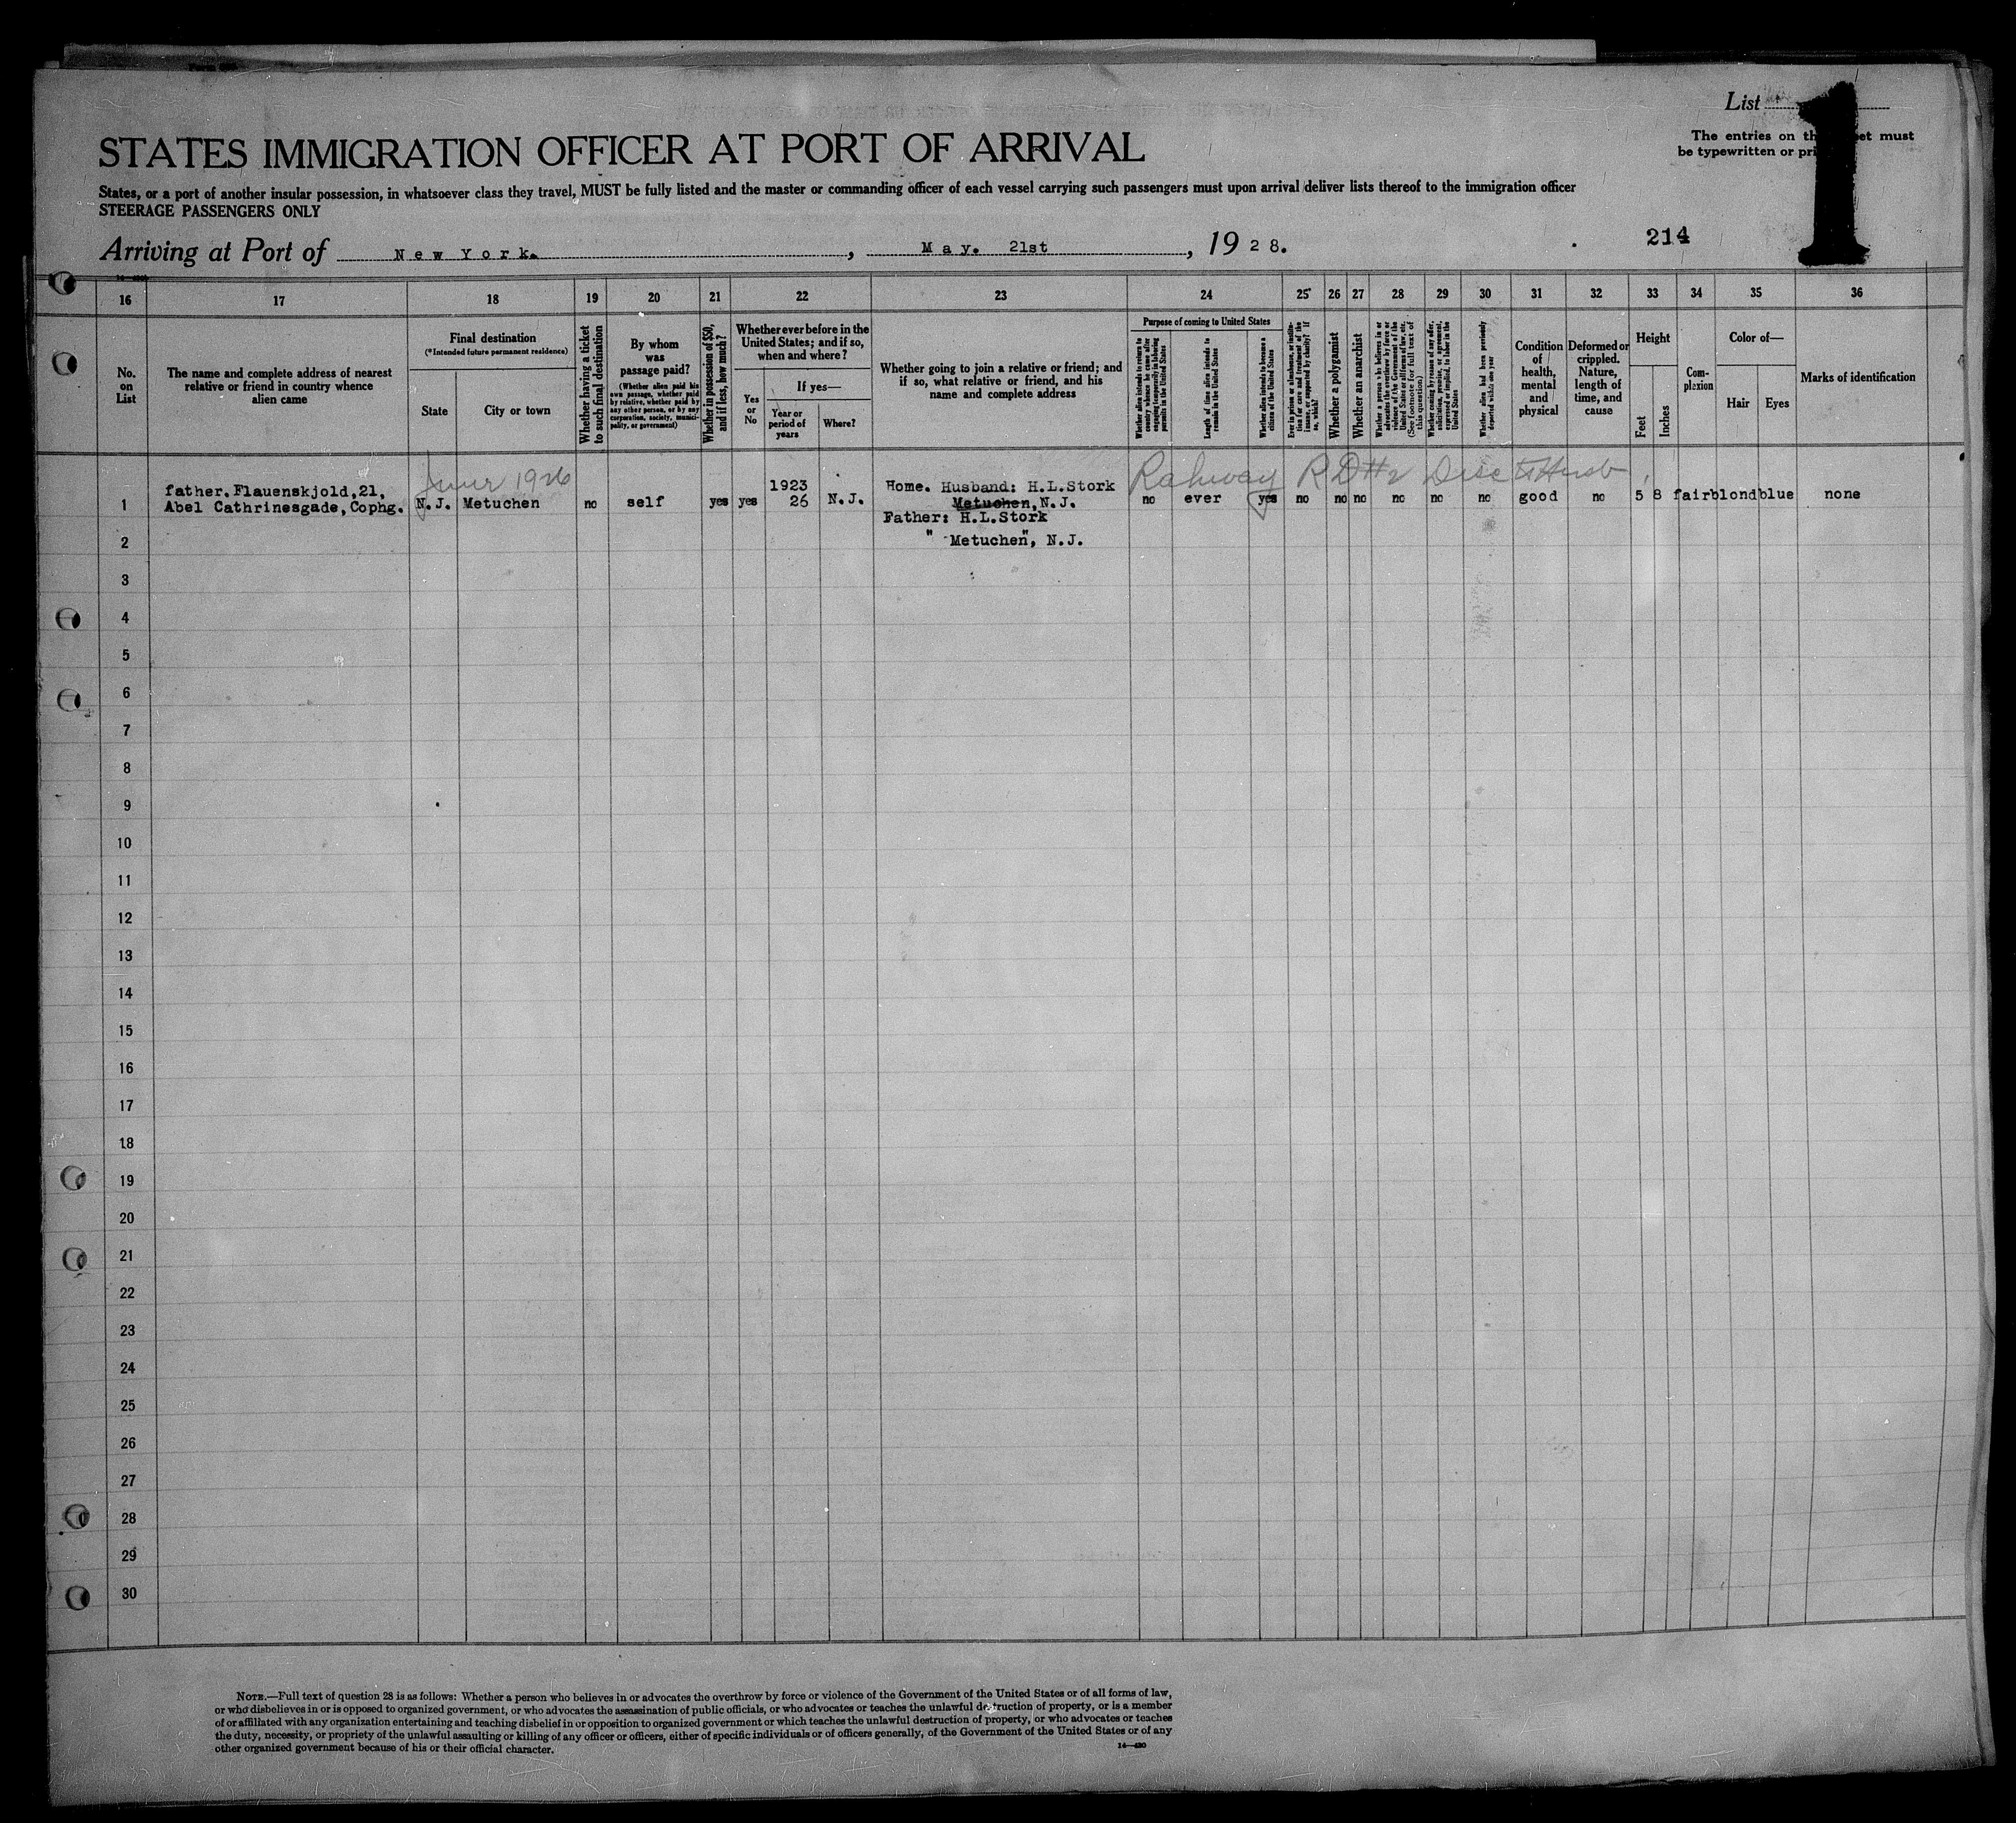 List 1
The entries on this sheet must
be typewritten or printed
STATES IMMIGRATION OFFICER AT PORT OF ARRIVAL
States, or a port of another insular possession, in whatsoever class they travel, MUST be fully listed and the master or commanding officer of each vessel carrying such passengers must upon arrival deliver lists thereof to the immigration officer
STEERAGE PASSENGERS ONLY
Arriving at Port of New York. , May. 21st , 1928.
214
16 17 18 19 20 21 22 23 24 25 26 27 28 29 30 31 32 33 34 35 36
No. on List
The name and complete address of nearest relative or friend in country whence alien came
Final destination
(*Intended future permanent residence)
State
City or town
Whether having a ticket to such final destination
By whom was passage paid?
(Whether alien paid his own passage, whether paid by relative, whether paid by any other person, or by any corporation, society, municipality, or government)
Whether in possession of $50, and if less, how much?
Whether ever before in the United States; and if so, when and where?
Yes or No
If yes—
Year or period of years
Where?
Whether going to join a relative or friend; and if so, what relative or friend, and his name and complete address
Purpose of coming to United States
Whether alien intends to return to country whence he came after engaging temporarily in laboring pursuits in the United States
Length of time alien intends to remain in the United States
Whether alien intends to become a citizen of the United States
Ever in prison or almshouse, or institution for care and treatment of the insane, or supported by charity? If so, which?
Whether a polygamist
Whether an anarchist
Whether a person who believes in or advocates the overthrow by force or violence of the Government of the United States or all forms of law, etc. (See footnote for full text of this question)
Whether coming by reason of any offer, solicitation, promise, or agreement, expressed or implied, to labor in the United States
Whether alien had been previously deported within one year
Condition of health, mental and physical
Deformed or crippled. Nature, length of time, and cause
Height
Feet
Inches
Complexion
Color of—
Hair
Eyes
Marks of identification
June 1926
Rahway RD#2
father. Flauenskjold,21,
Abel Cathrinesgade,Cophg.
N.J. Metuchen no self yes yes
1923
26 N.J.
Home. Husband: H.L.Stork
Metuchen,N.J.
no ever yes no no no no no no good no 5 8 fair blond blue none
Father: H.L.Stork
" Metuchen", N.J.
1
2
3
4
5
6
7
8
9
10
11
12
13
14
15
16
17
18
19
20
21
22
23
24
25
26
27
28
29
30
NOTE.—Full text of question 28 is as follows: Whether a person who believes in or advocates the overthrow by force or violence of the Government of the United States or of all forms of law,
or who disbelieves in or is opposed to organized government, or who advocates the assassination of public officials, or who advocates or teaches the unlawful destruction of property, or is a member
of or affiliated with any organization entertaining and teaching disbelief in or opposition to organized government or which teaches the unlawful destruction of property, or who advocates or teaches
the duty, necessity, or propriety of the unlawful assaulting or killing of any officer or officers, either of specific individuals or of officers generally, of the Government of the United States or of any
other organized government because of his or their official character.
14—430